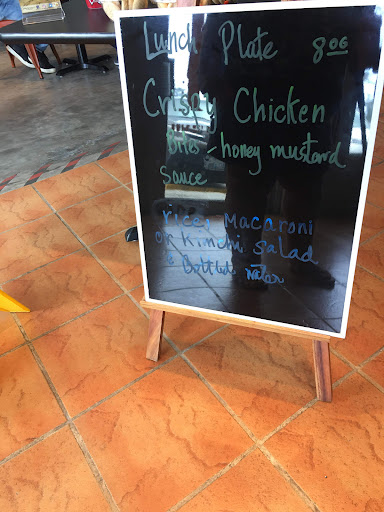 Lunch Plate 8.06
Crispy Chicken
Bites - honey mustard
sauce
rice, Macaroni
or Kimchi Salad
& Bottled water